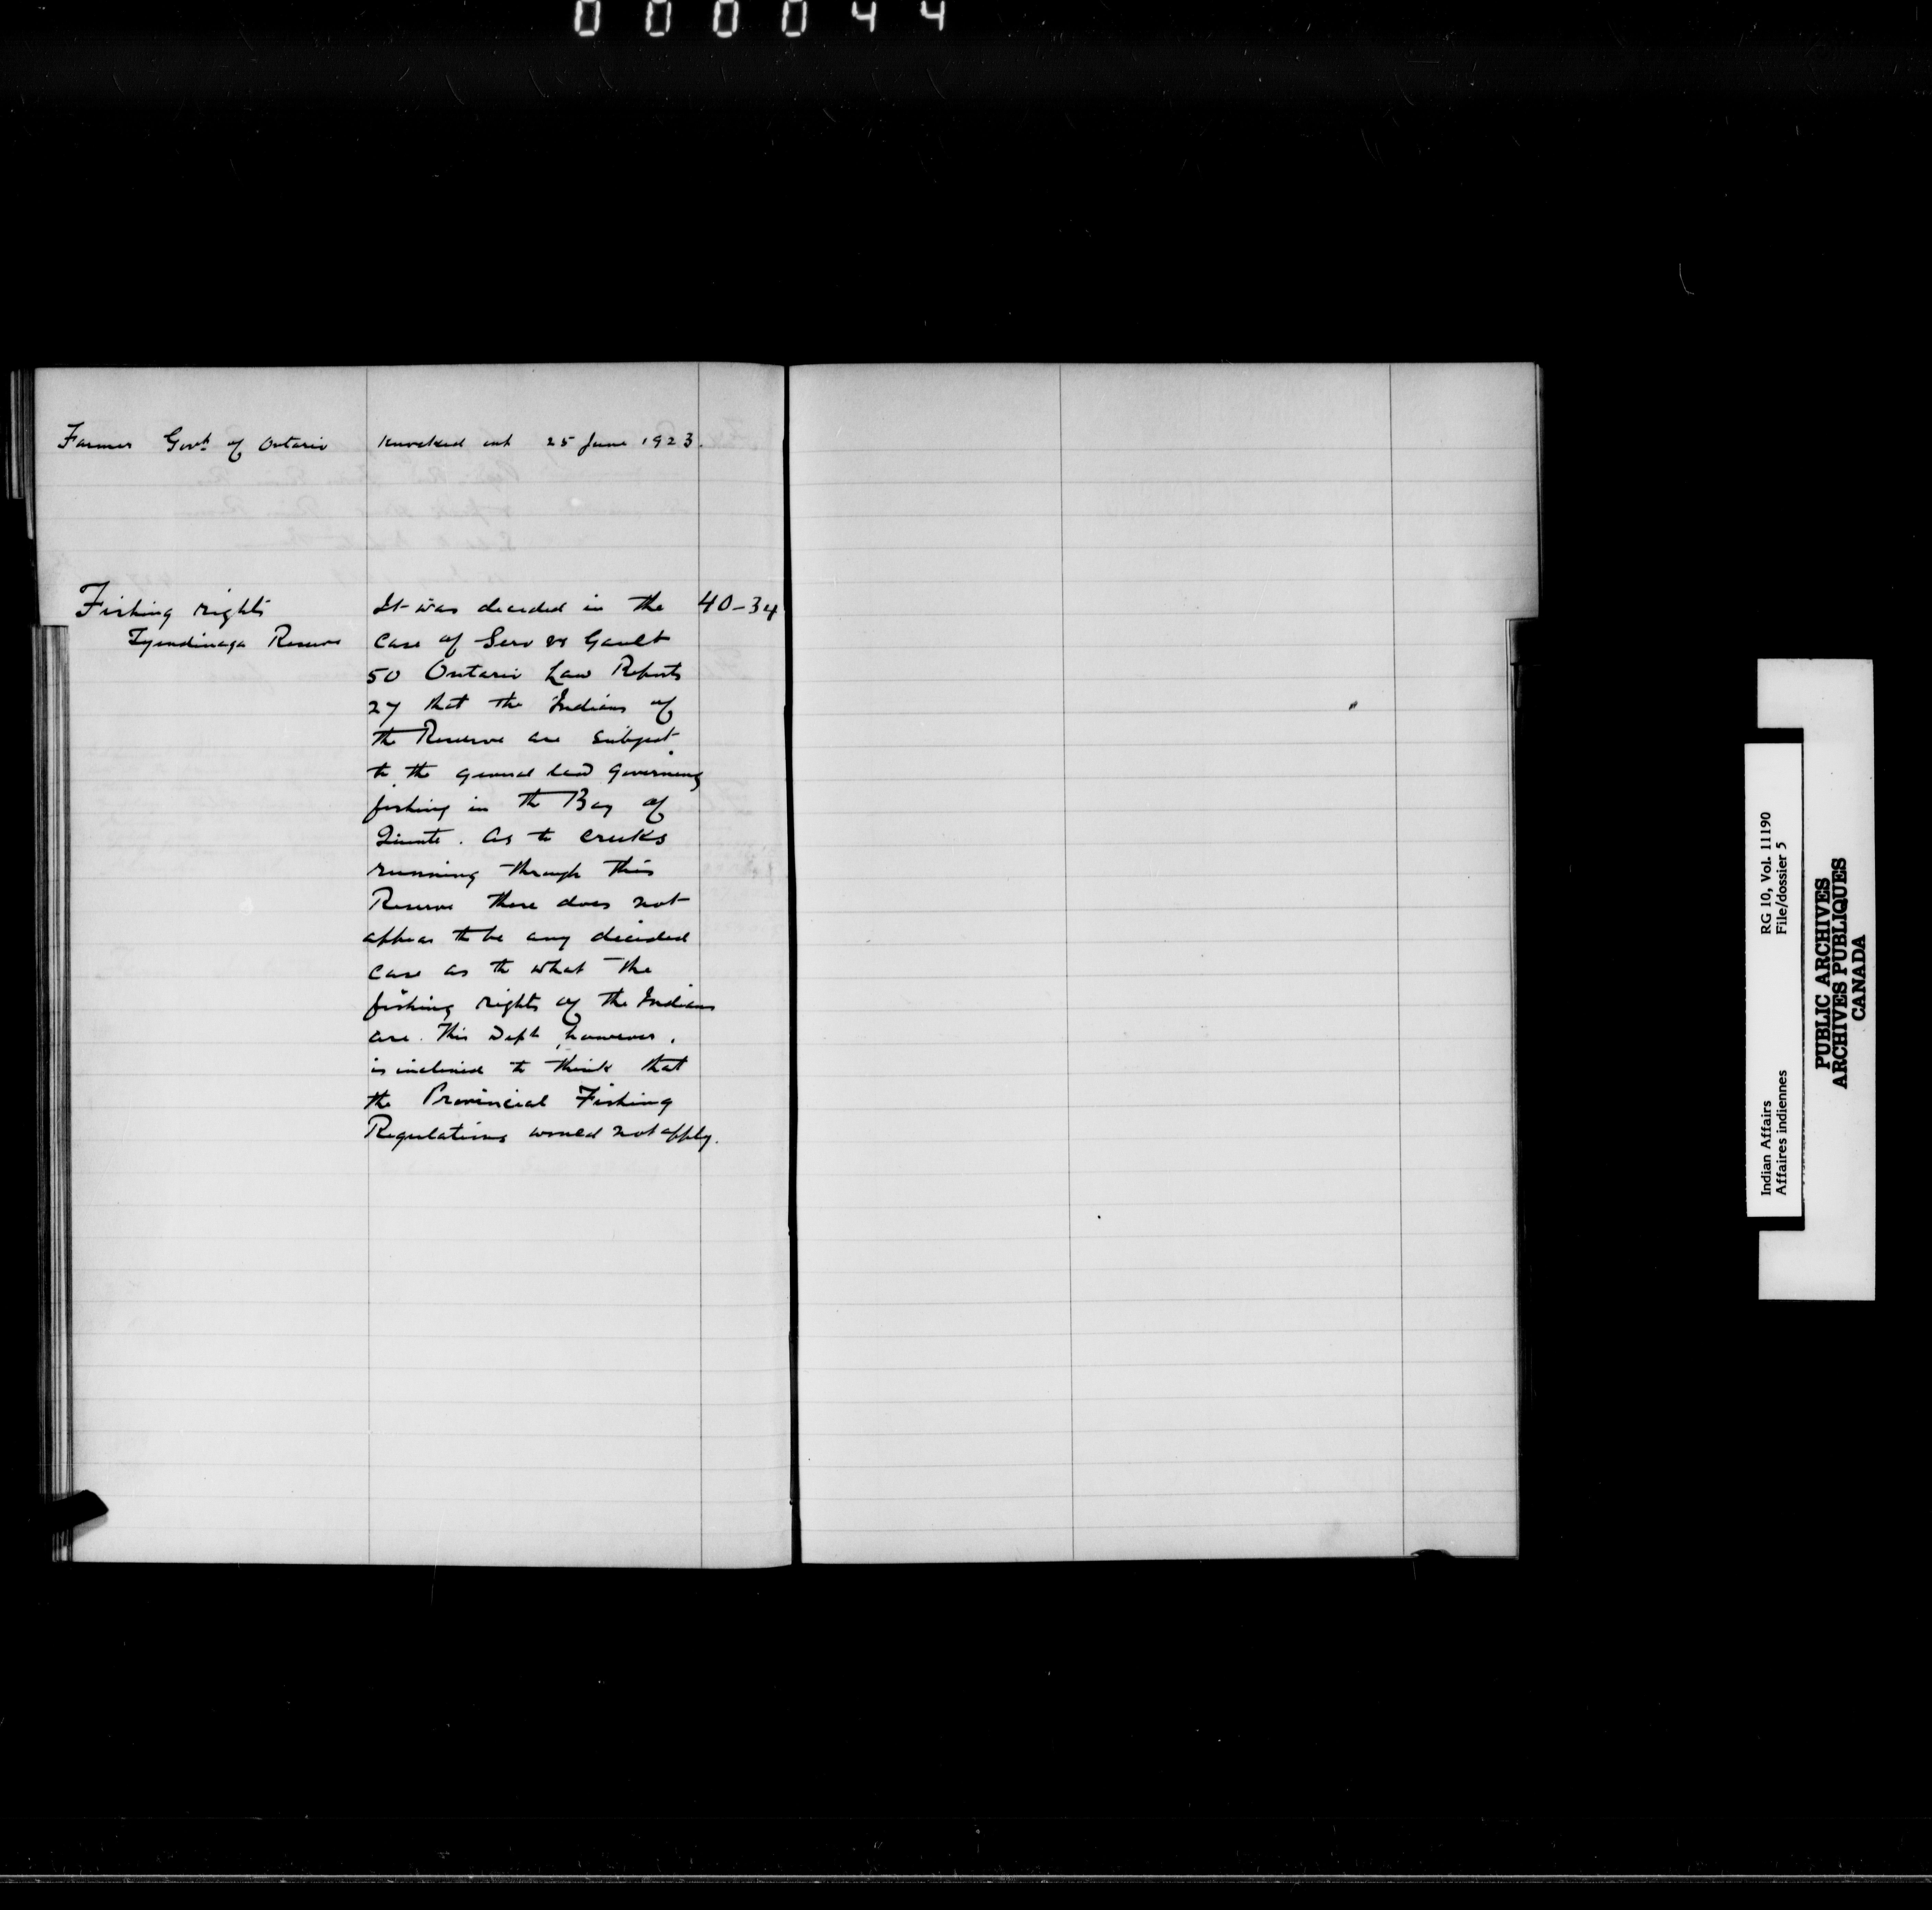 000044
Farmer Govt of Ontario knocked out 25 June 1923.
Fishing rights It was decided in the 40-34
Tyendinaga Reserve case of Sero vs Gault
50 Ontario Law Reports
27 that the Indians of
the Reserve are subject
to the general law governing
fishing in the Bay of
Quinte. As to creeks
running through this
Reserve there does not
appear to be any decided
case as to what the
fishing rights of the Indians
are. This Dept, however,
is inclined to think that
the Provincial Fishing
Regulations would not apply.
Indian Affairs RG 10, Vol. 11190
Affaires indiennes File/dossier 5
PUBLIC ARCHIVES
ARCHIVES PUBLIQUES
CANADA